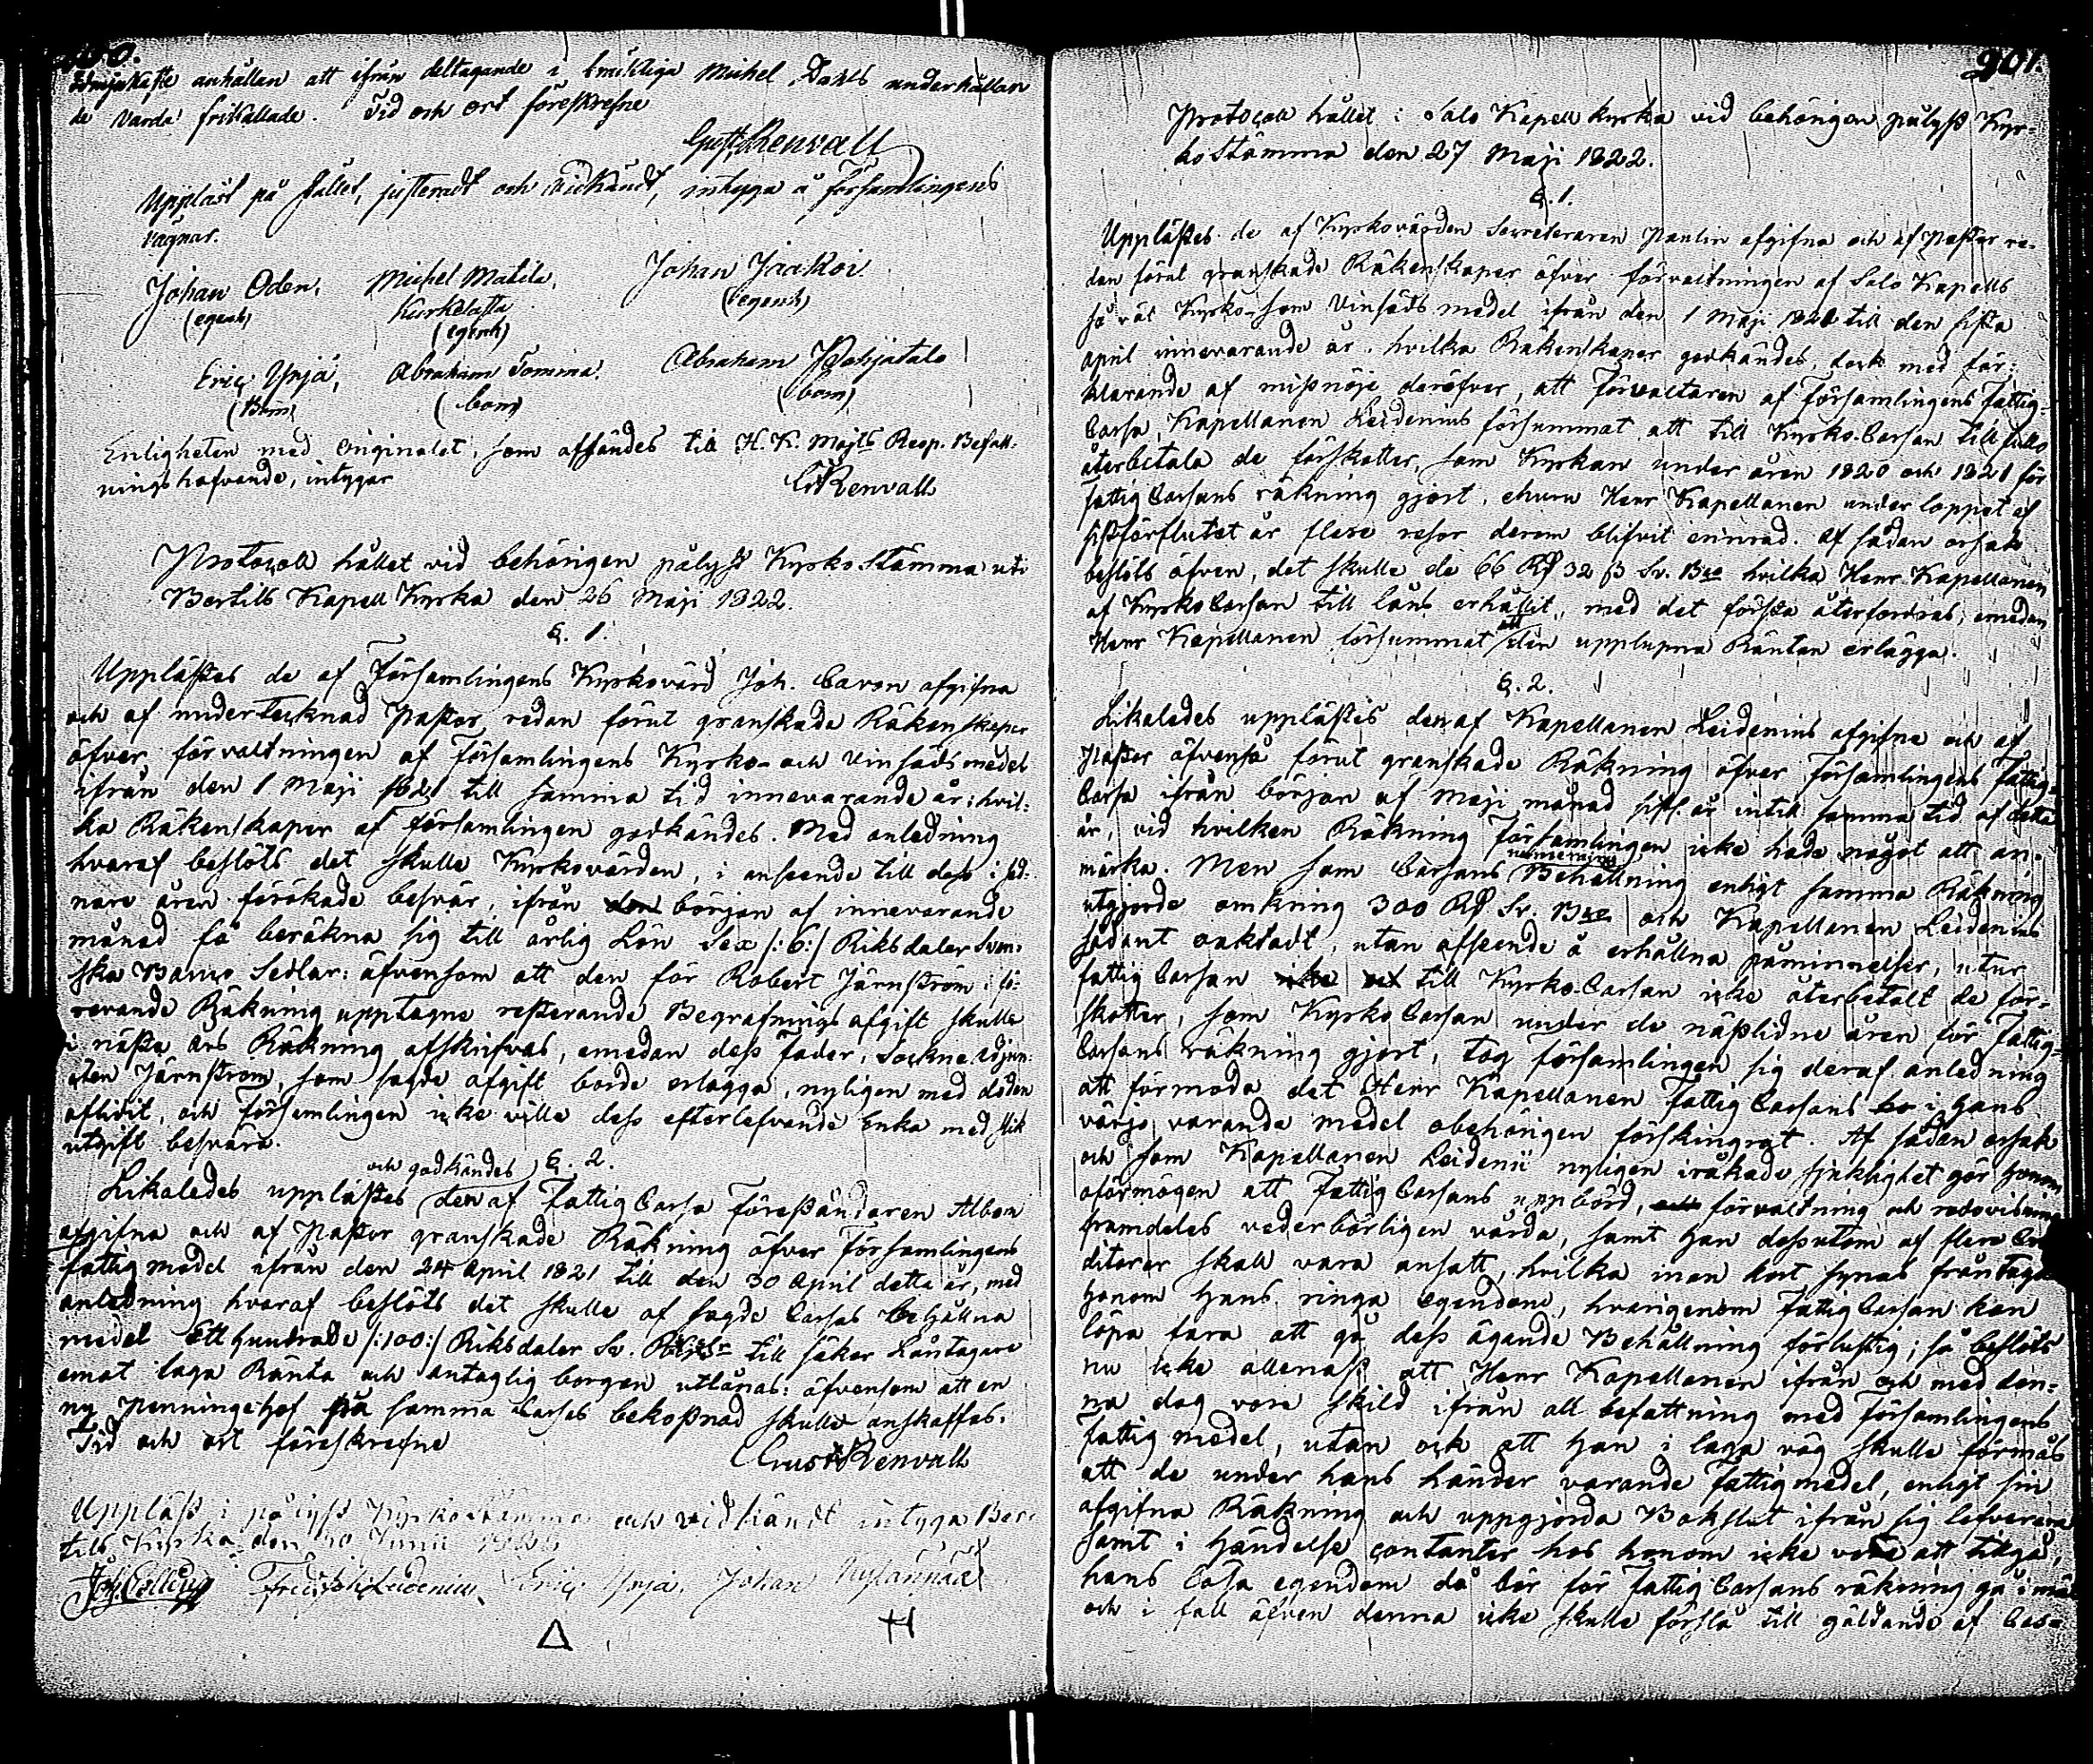 ödmjukaste anhållan att ifrån deltagande i bräcklige Michel Dahls underhållan
de varda frikallade. Tid och ort föreskrefne
Gust. Renvall
Uppläst på stället, justeradt och vidkändt, intyga å Församlingens
vägnar.
Johan Oden, Michel Matila, Johan Jaakoi
(egenh) Kurkelasta (egenh)
(egenh)
Eric Yrjä, Abraham Tomma. Abraham Pohjatalo
(Bom) (bom) (bom)
Enligheten med originalet, som afsändes till H. K. Majts Resp. Befall-
ningshafvande, intygar
G Renvall
Protocoll hållet vid behörigen pålyst Kyrkostämma uti
Bertills Kapell Kyrka den 26 Maji 1822.
§. 1.
Upplästes de af Församlingens Kyrkovärd Joh. Cavon afgifna
och af undertecknad Pastor redan förut granskade Räkenskaper
öfver förvaltningen af Församlingens Kyrko- och Vinsädsmedel
ifrån den 1 Maji 1821 till samma tid innevarande år; hvil-
ka Räkenskaper af församlingen godkändes. Med anledning
hvaraf beslöts det skulle Kyrkovärden, i anseende till dess i sed-
nare åren förökade besvär, ifrån den början af innevarande
månad få beräkna sig till årlig Lön Sex /:6:/ Riksdaler Sven-
ska Banco Sedlar; äfvensom att den för Robert Järnström i fö-
revarande Räkning upptagne resterande Begrafningsafgift skulle
i nästa års Räkning afskrifvas, emedan dess Fader, Sockne adjun-
cten Järnström, som sagde afgift borde erlägga, nyligen med döden
aflidit, och Församlingen icke ville dess efterlefvande Enka med slik
utgift besvära.
§. 2.
och godkändes
Likaledes upplästes den af Fattig Cassa Föreståndaren Albom
afgifna och af Pastor granskade Räkning öfver Församlingens
fattigmedel ifrån den 24 April 1821 till den 30 April detta år, med
anledning hvaraf beslöts det skulle af sagde Cassas behållna
medel Ett hundrade /:100:/ Riksdaler Sv. till säker Låntagare
emot laga Ränta och antaglig borgen utlånas; äfvensom att en
ny Penningehof på samma Cassas bekostnad skulle anskaffas.
Tid och ort föreskrefne
Gust Renvall
Uppläst i pålyst Kyrkostämma och vidkändt intyga Ber-
tils Kyrka den 30 Junii
Joh. Fredr. Leidenius, Eric Yrjä, Johan
901.
Protocoll hållet i Salo Kapell kyrka vid behörigen pålyst Kyr-
kostämma den 27 Maji 1822.
§. 1.
Upplästes de af Kyrkovärden Secreteraren Paulin afgifna och af Pastor re-
dan förut granskade Räkenskaper öfver förvaltningen af Salo Kapells
så väl Kyrko- som Vinsäds medel ifrån den 1 Maji 1821 till den sista
April innevarande år, hvilka Räkenskaper godkändes, dock med för-
klarande af missnöje deröfver, att Förvaltaren af Församlingens Fattig-
Cassa, Kapellanen Leidenius försummat, att till Kyrko-Cassan till fullo
återbetala de förskotter, som Kyrkan under åren 1820 och 1821 för
fattig Cassans räkning gjort, ehuru Herr Kapellanen under loppet af
sistförflutet år flere resor derom blifvit erinrad. Af sådan orsak
beslöts äfven, det skulle de 66 Rd 32 ß Sv. Bco hvilka Herr Kapellanen
af Kyrko Cassan till låns erhållit, med det första återfordras, emedan
Herr Kapellanen försummat att den upplupna Räntan erlägga.
§. 2.
Likaledes upplästes den af Kapellanen Leidenius afgifne och af
Pastor äfvenså förut granskade Räkning öfver Församlingens Fattig-
Cassa ifrån början af Maji månad sistl. år intill samma tid af detta
år, vid hvilken Räkning Församlingen icke hade något att an-
märka. Men som Cassans Behållning enligt samma Räkning
utgjorde omkring 300 Rd Sv. Bco och Kapellanen Leidenius
sådant oaktadt, utan afseende å erhållna påminnelser, utur
fattig Cassan till Kyrko-Cassan icke återbetalt de för-
skotter, som Kyrko Cassan under de nästlidne åren för Fattig-
Cassans räkning gjort, tog församlingen sig deraf anledning
att förmoda det Herr Kapellanen Fattig Cassans i hans
värjo varande medel obehörigen förskingrat. Af sådan orsak
och som Kapellanen Leidenii nyligen iråkade sjuklighet gör honom
oförmögen att Fattig Cassans uppbörd, förvaltning och redovisning
framdeles vederbörligen vårda, samt han dessutom af flere Cre
ditorer skall vara ansatt, hvilka inan kort synas fråntaga
honom hans ringa egendom, hvarigenom Fattig Cassan kan
löpa fara att gå dess ägande Behållning förlustig; så beslöts
nu icke allenast att Herr Kapellanen ifrån och med den-
na dag vore skild ifrån all befattning med Församlingens
Fattigmedel, utan ock att han i laga väg skulle förmås
att de under hans händer varande Fattigmedel, enligt sin
afgifna Räkning och uppgjorda Bokslut ifrån sig lefverera
samt i händelse contanter hos honom icke vore att tillgå,
hans lösa egendom då bör för Fattig Cassans räkning gå i mät
och i fall äfven denna icke skulle förslå till gäldande af Cas-